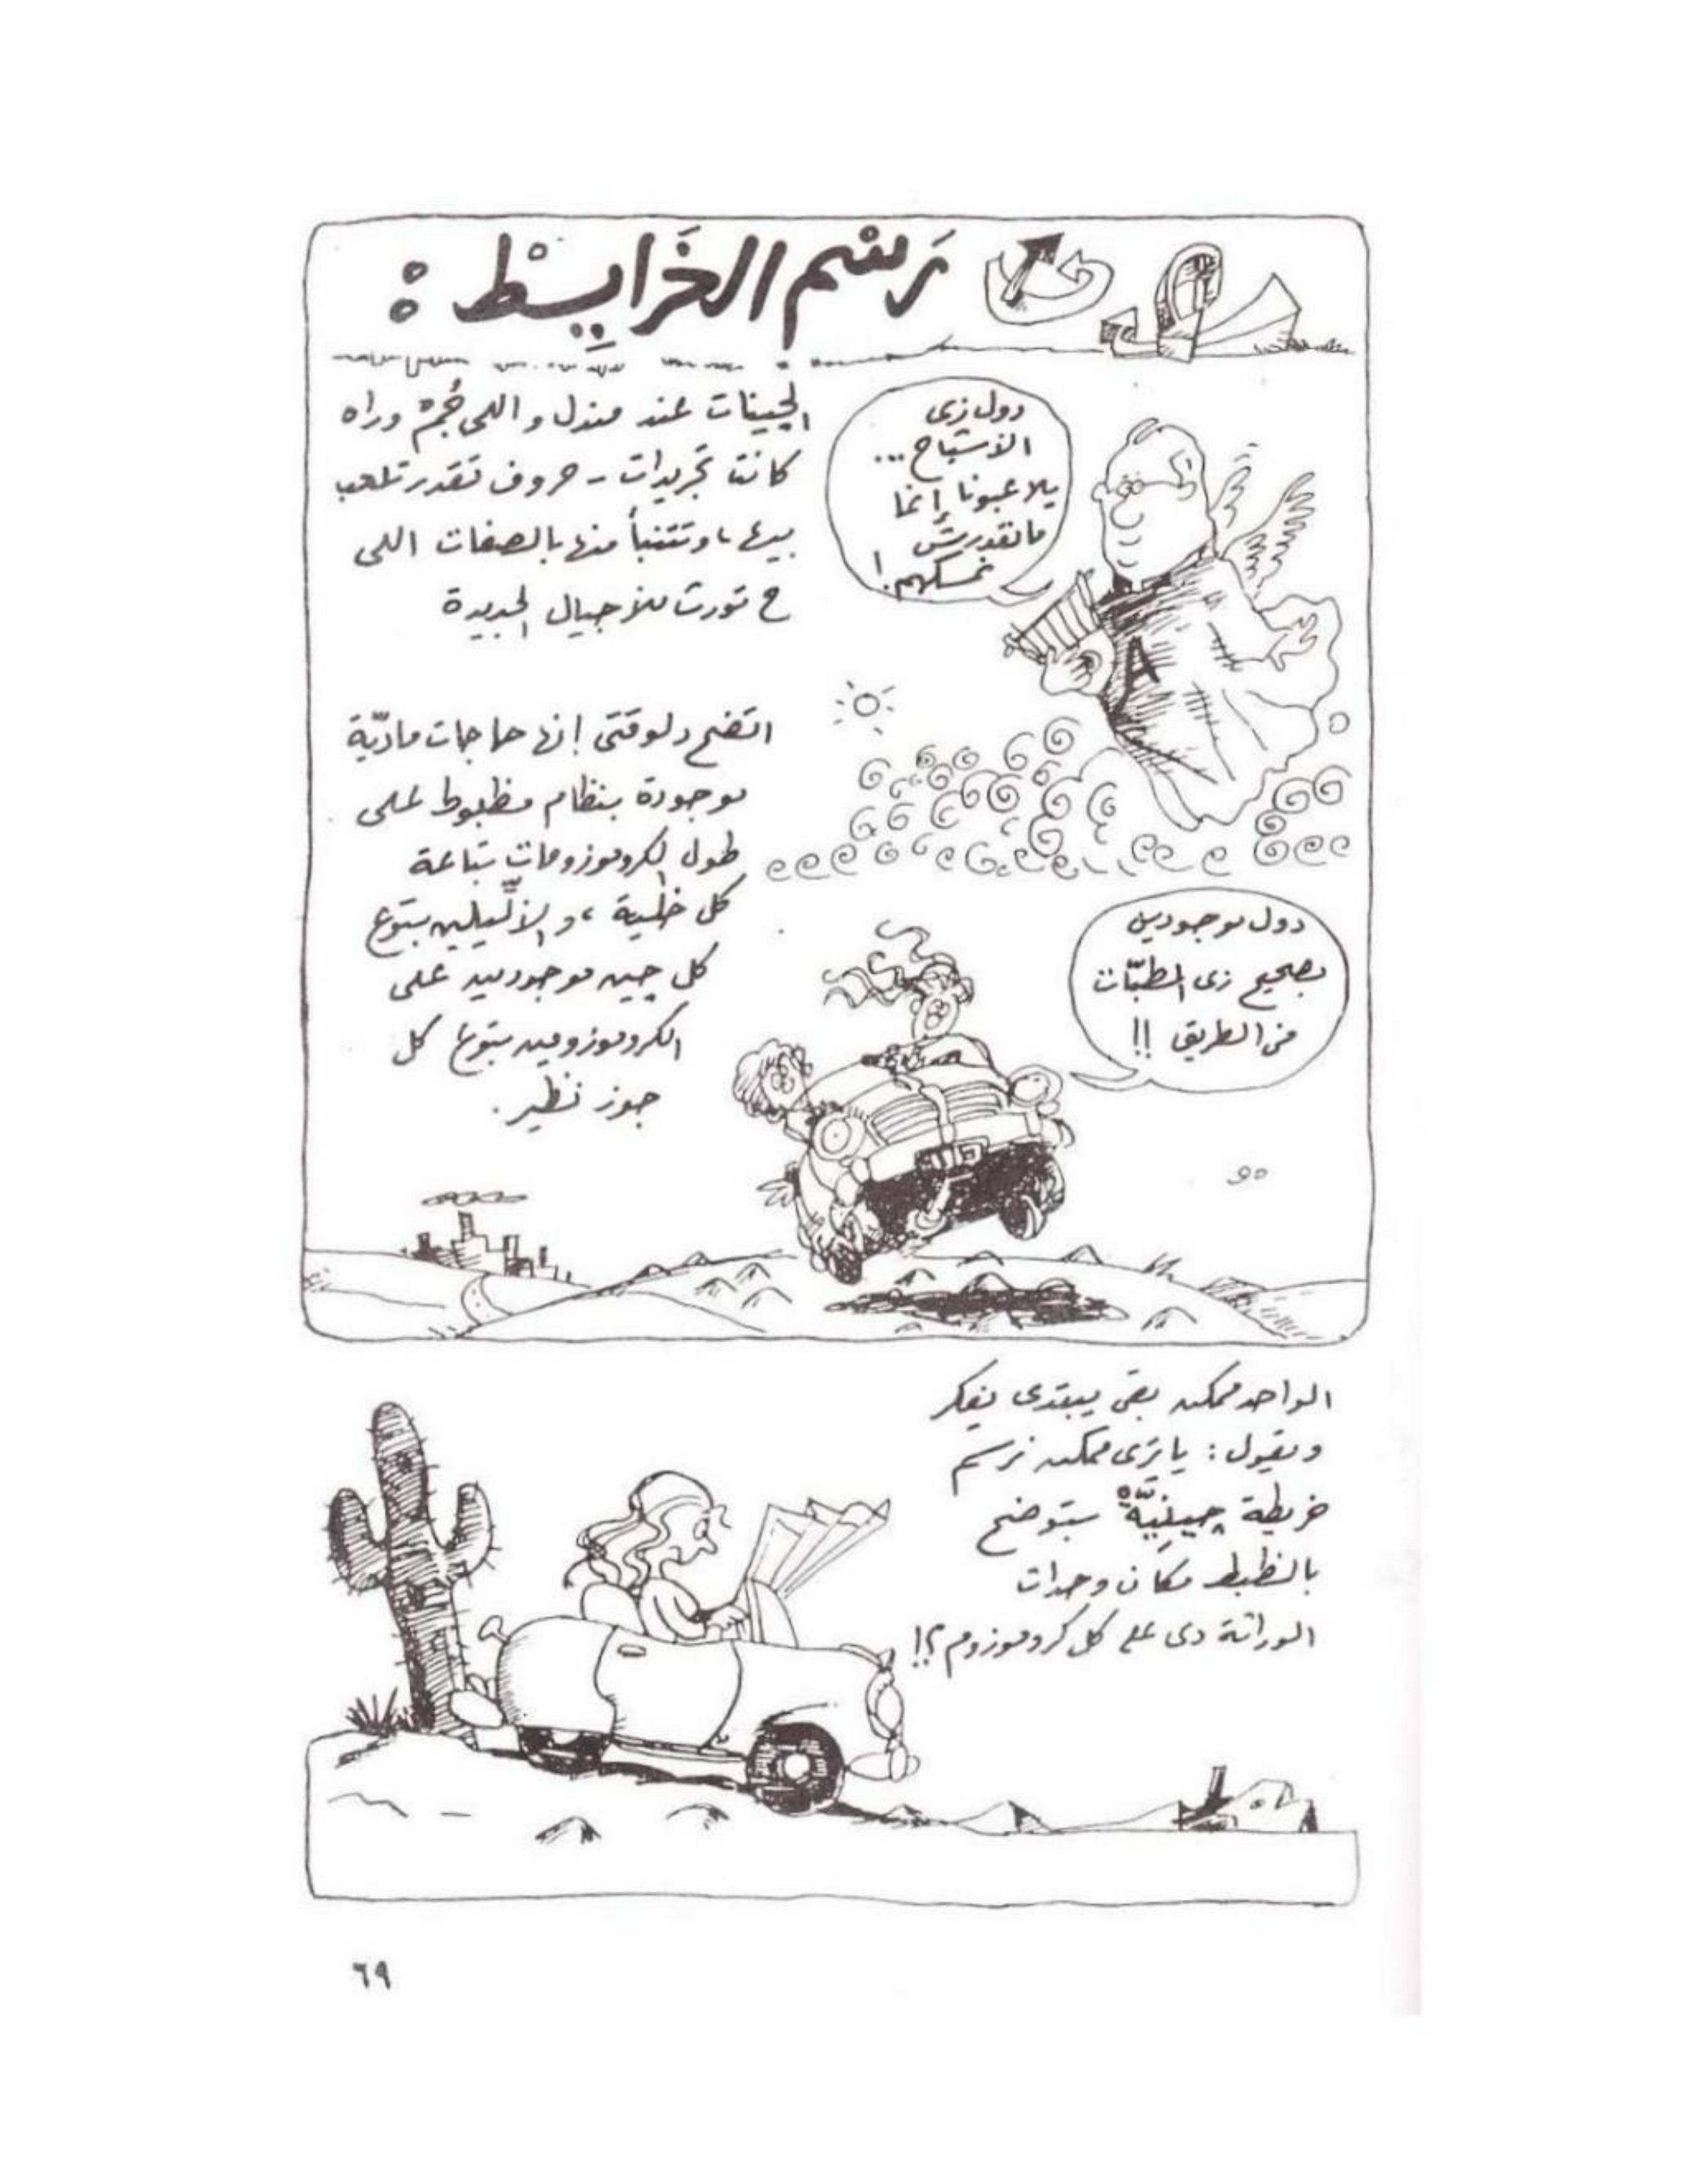 رَسْم الخَرايِطْ :
الجينات عند مندل واللى جُمْ وراه
كانت تجريدات - حروف تقدر تلعب
بيها، وتتنبأ منها بالصفات اللى
ح تورث للأجيال الجديدة
دول زى
الأشباح ...
يلاعبونا إنما
مانقدرش
نمسكهم !
A
اتضح دلوقتى إنها حاجات ماديّة
موجودة بنظام مظبوط على
طول الكروموزومات بتاعة
كل خلية ، والأليلين بتوع
كل چين موجودين على
الكروموزومين بتوع كل
جوز نظير .
دول موجودين
بصحيح زى المطبّات
فى الطريق !!
الواحد ممكن بقى يبتدى يفكر
ويقول : ياترى ممكن نرسم
خريطة چينيَّةْ بتوضح
بالظبط مكان وحدات
الوراثة دى على كل كروموزوم ؟!
٦٩